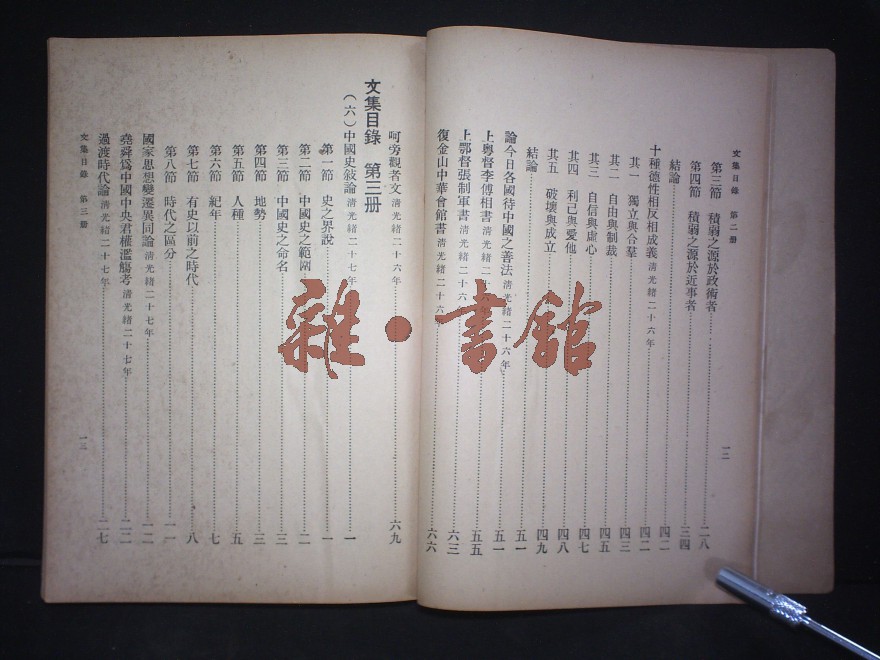 文集目錄 第二册
第三節 積弱之源於政術者 二八
第四節 積弱之源於近事者 三四
結論 四二
十種德性相反相成義 清光緒二十六年 四二
其一 獨立與合羣 四三
其二 自由與制裁 四五
其三 自信與虛心 四七
其四 利己與愛他 四八
其五 破壞與成立 四九
結論 五一
論今日各國待中國之善法 清光緒二十六年 五一
上粵督李傅相書 清光緒二十六年 五五
上鄂督張制軍書 清光緒二十六 六三
復金山中華會館書 清光緒二十六 六六
一二
呵旁觀者文 清光緒二十六年 六九
文集目錄 第三册
(六)中國史敍論 清光緒二十七年 一
第一節 史之界說 一
第二節 中國史之範圍 三
第三節 中國史之命名 三
第四節 地勢 三
第五節 人種 五
第六節 紀年 七
第七節 有史以前之時代 八
第八節 時代之區分 一一
國家思想變遷異同論 清光緒二十七年 一二
堯舜爲中國中央君權濫觴考 清光緒二十七年 二二
過渡時代論 清光緒二十七年 二七
文集目錄 第三册
一三
雜·書館